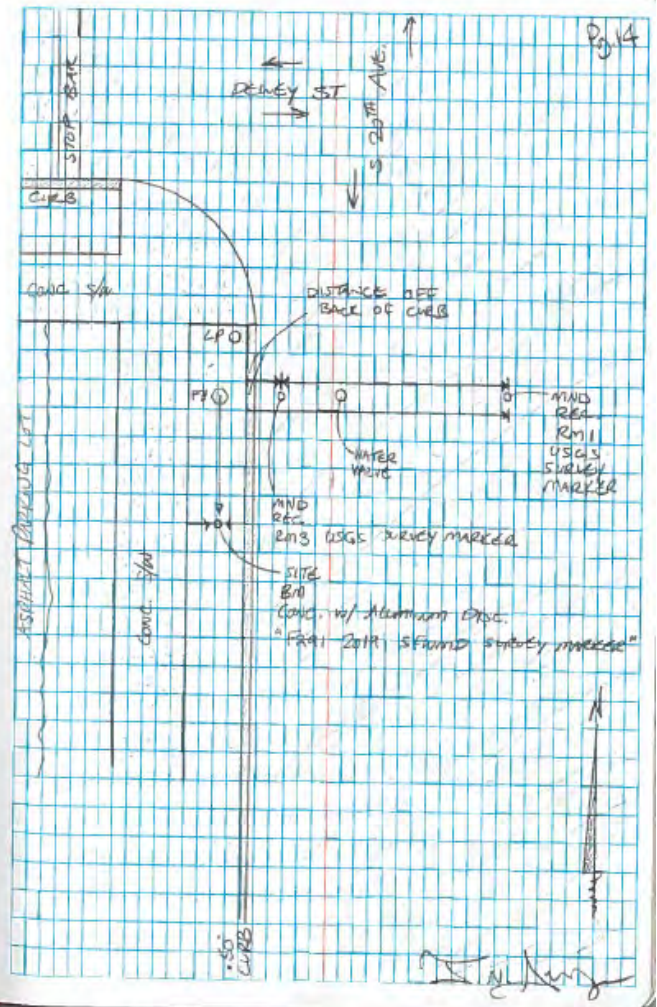 Pg. 14
DEWEY ST
S 20TH AVE.
STOP BAR
CURB
CONC. S/W
DISTANCE OFF
BACK OF CURB
LP
FH
MND
REC.
RM1
USGS
SURVEY
MARKER
WATER
VALVE
MND
REC.
RM3 USGS SURVEY MARKER
SITE
BM
CONC. w/ ALUMINUM DISC.
"F291 2019, SFWMD SURVEY MARKER"
ASPHALT PARKING LOT
CONC. S/W
.50'
CURB
N